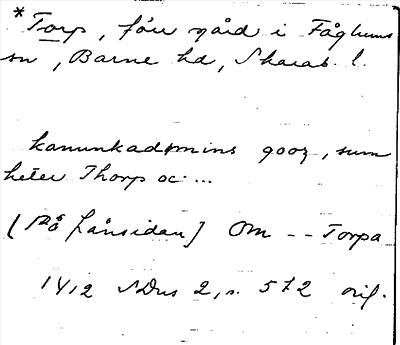 *Torp, förr gård i Fåglums
sn, Barne hd, Skarab. l.
kanunkadømins gooz, sum
heter Thorp oc ...
[På frånsidan] Om -- Torpa
1412 SDns 2, s. 572 orig.